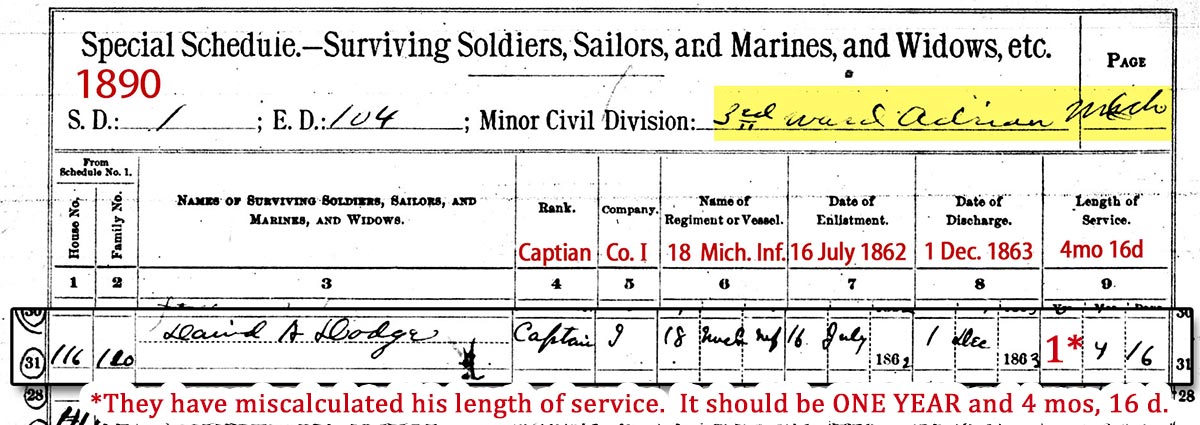 Special Schedule.—Surviving Soldiers, Sailors, and Marines, and Widows, etc.
PAGE
1890
S. D.: 1 ; E. D.: 104 ; Minor Civil Division: 3rd ward Adrian Mich
From
Schedule No. 1.
House No.
Family No.
NAMES OF SURVIVING SOLDIERS, SAILORS, AND
MARINES, AND WIDOWS.
Rank.
Company.
Name of
Regiment or Vessel.
Date of
Enlistment.
Date of
Discharge.
Length of
Service.
Captian Co. I 18 Mich. Inf. 16 July 1862 1 Dec. 1863 4mo 16d
1 2 3 4 5 6 7 8 9
30 30
31 116 120 David A Dodge Captain I 18 Mich Inf 16 July 1862 1 Dec 1863 1* 4 16 31
28 28
*They have miscalculated his length of service. It should be ONE YEAR and 4 mos, 16 d.